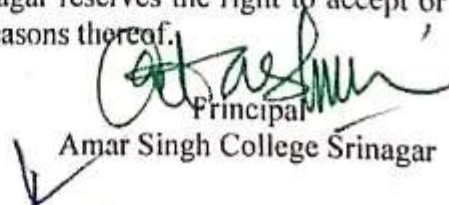 gar reserves the right to accept or
easons thereof.
Principal
Amar Singh College Srinagar